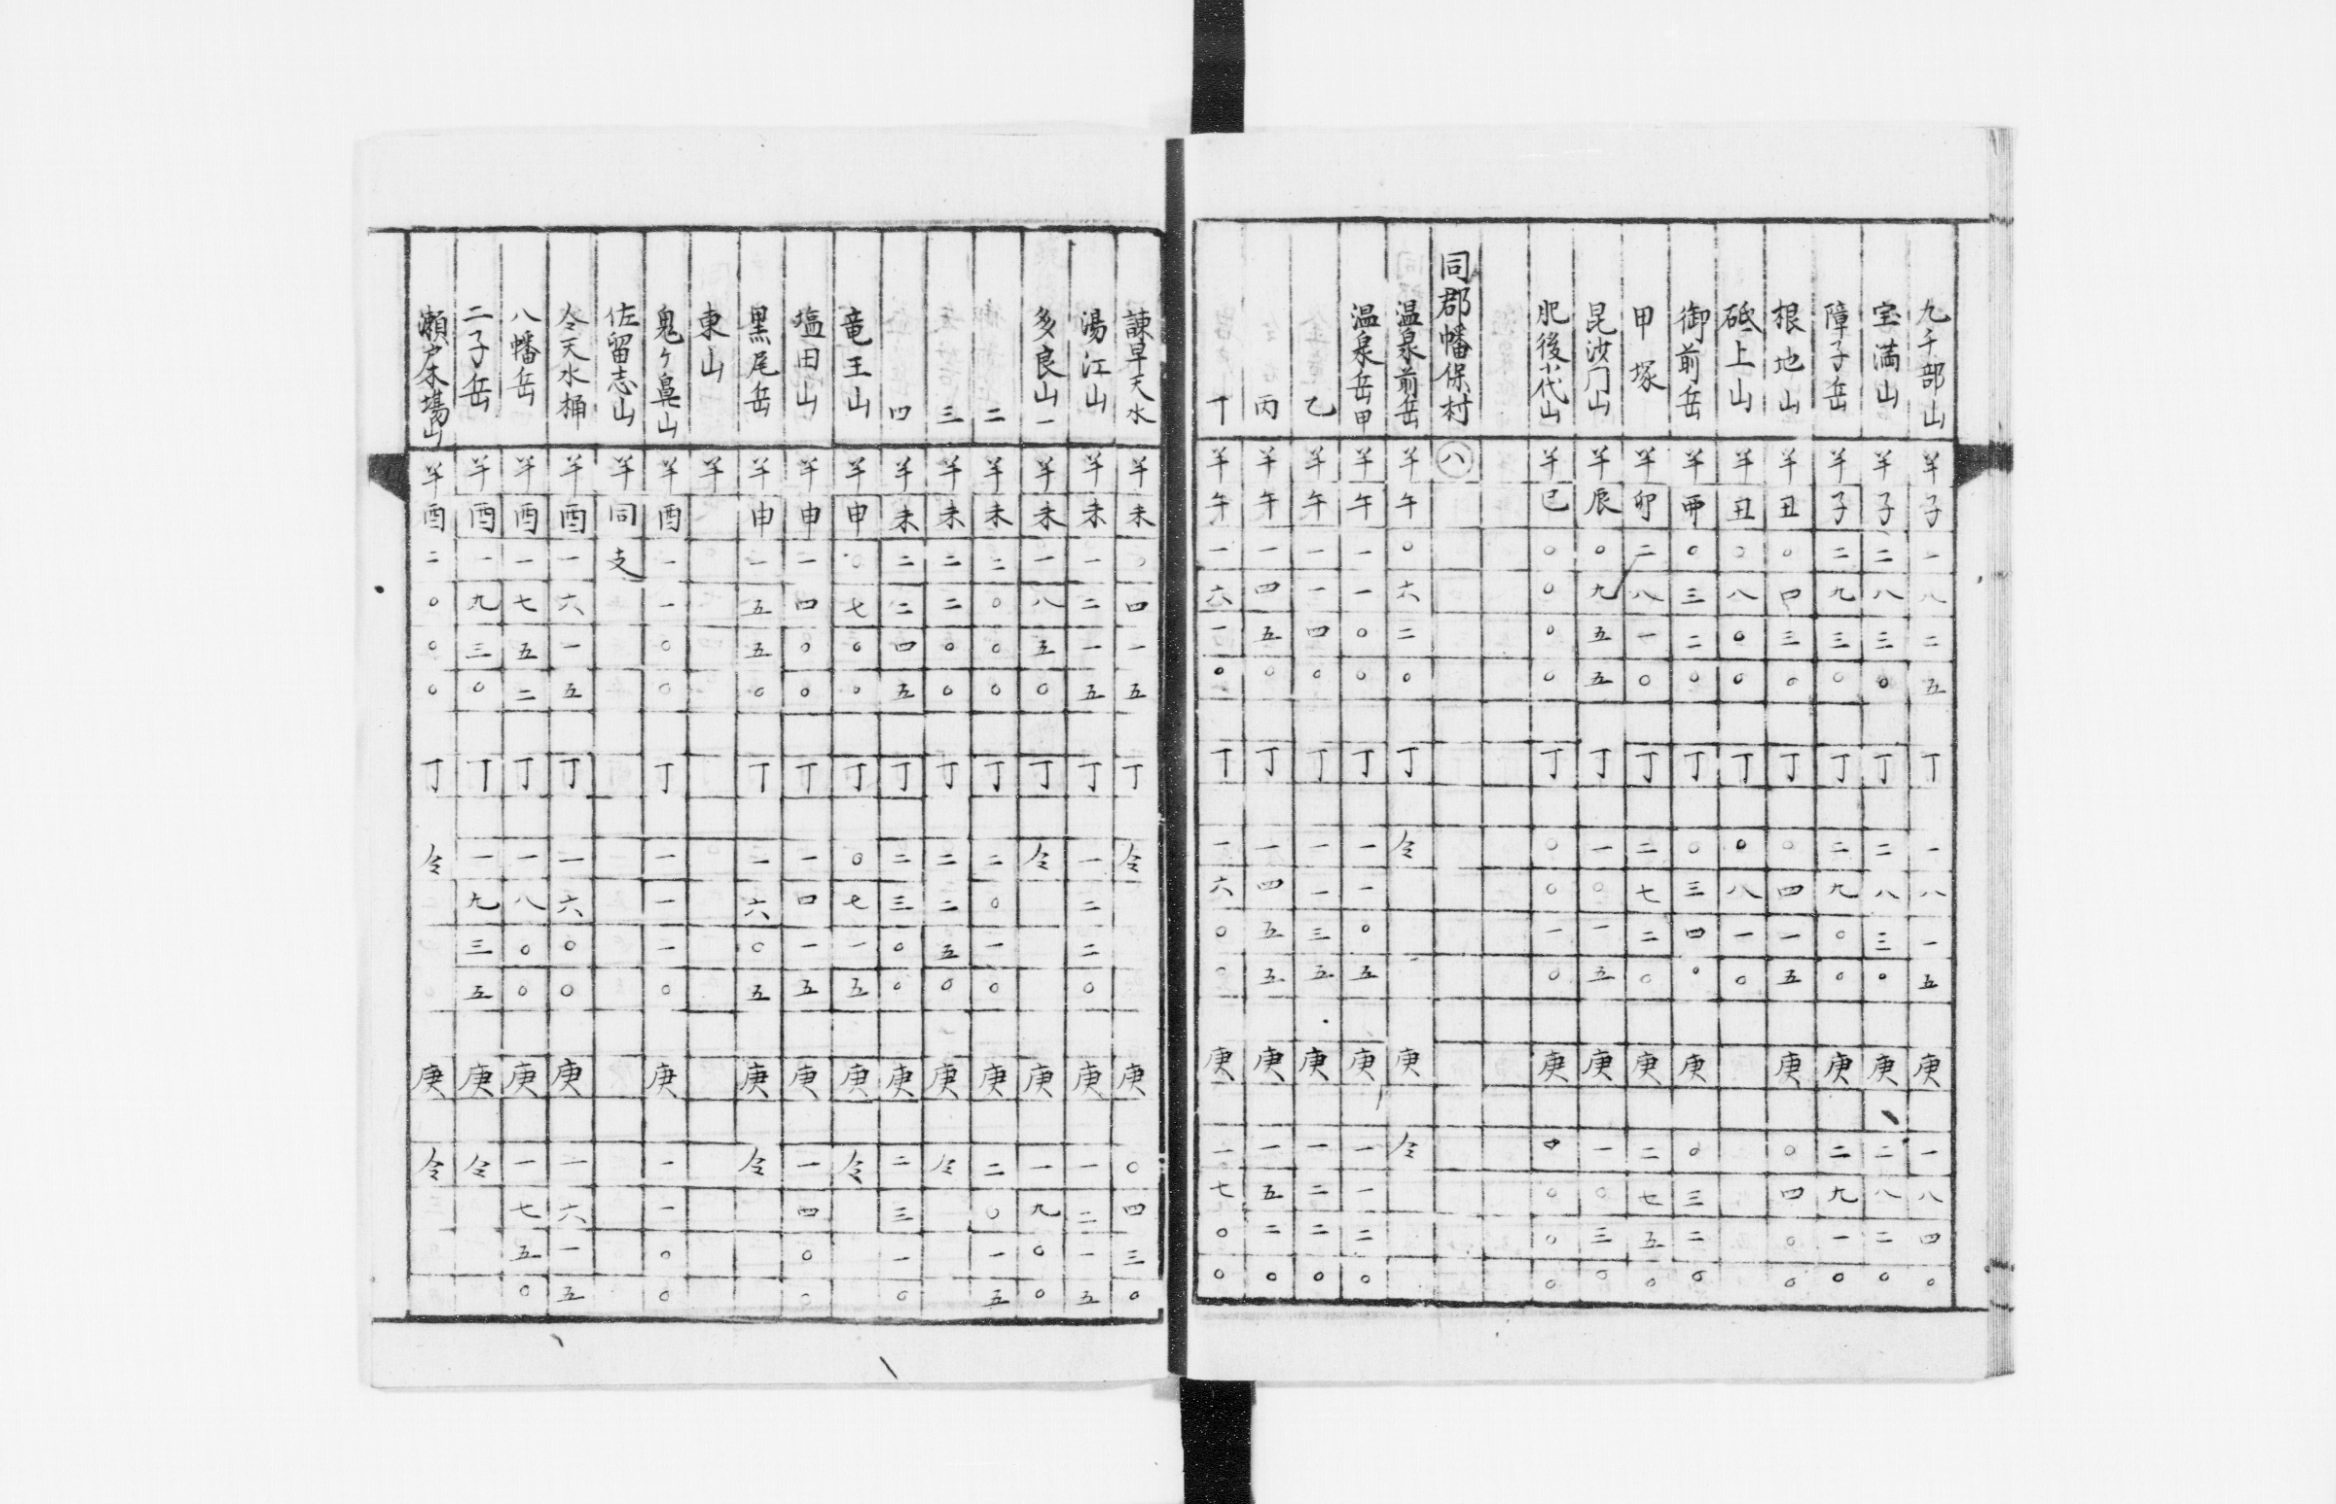 九千部山 羊 子 一 八 二 五 丁 一 八 一 五 庚 一 八 四 〇
宝満山 羊 子 二 八 三 〇 丁 二 八 三 〇 庚 二 八 二 〇
障子岳 羊 子 二 九 三 〇 丁 二 九 〇 〇 庚 二 九 一 〇
根地山 羊 丑 〇 四 三 〇 丁 〇 四 一 五 庚 〇 四 〇 〇
砥上山 羊 丑 〇 八 〇 〇 丁 〇 八 一 〇
御前岳 羊 丣 〇 三 二 〇 丁 〇 三 四 〇 庚 〇 三 二 〇
甲塚 羊 卯 二 八 一 〇 丁 二 七 二 〇 庚 二 七 五 〇
昆沙门山 羊 辰 〇 九 五 五 丁 一 〇 一 五 庚 一 〇 三 〇
肥後小代山 羊 巳 〇 〇 〇 〇 丁 〇 〇 一 〇 庚 〇 〇 〇 〇
同郡幡保村 八
温泉前岳 羊 午 〇 六 二 〇 丁 仝 庚 仝
温泉岳甲 羊 午 一 一 〇 〇 丁 一 一 〇 五 庚 一 一 二 〇
乙 羊 午 一 一 四 〇 丁 一 一 三 五 庚 一 二 二 〇
丙 羊 午 一 四 五 〇 丁 一 四 五 五 庚 一 五 二 〇
丁 羊 午 一 六 一 〇 丁 一 六 〇 〇 庚 一 七 〇 〇
諌早天水 羊 未 〇 四 一 五 丁 仝 庚 〇 四 三 〇
湯江山 羊 未 一 二 一 五 丁 一 二 二 〇 庚 一 二 一 五
多良山一 羊 未 一 八 五 〇 丁 仝 庚 一 九 〇 〇
二 羊 未 二 〇 〇 〇 丁 二 〇 一 〇 庚 二 〇 一 五
三 羊 未 二 二 〇 〇 丁 二 二 五 〇 庚 仝
四 羊 未 二 二 四 五 丁 二 三 〇 〇 庚 二 三 一 〇
竜王山 羊 申 〇 七 〇 〇 丁 〇 七 一 五 庚 仝
塩田山 羊 申 一 四 〇 〇 丁 一 四 一 五 庚 一 四 〇 〇
黒尾岳 羊 申 一 五 五 〇 丁 一 六 〇 五 庚 仝
東山 羊
鬼ヶ鼻山 羊 酉 一 一 〇 〇 丁 一 一 一 〇 庚 一 一 〇 〇
佐留志山 羊 同 支
仝天水桶 羊 酉 一 六 一 五 丁 一 六 〇 〇 庚 一 六 一 五
八幡岳 羊 酉 一 七 五 二 丁 一 八 〇 〇 庚 一 七 五 〇
二子岳 羊 酉 一 九 三 〇 丁 一 九 三 五 庚 仝
瀬戸木場山 羊 酉 二 〇 〇 〇 丁 仝 庚 仝